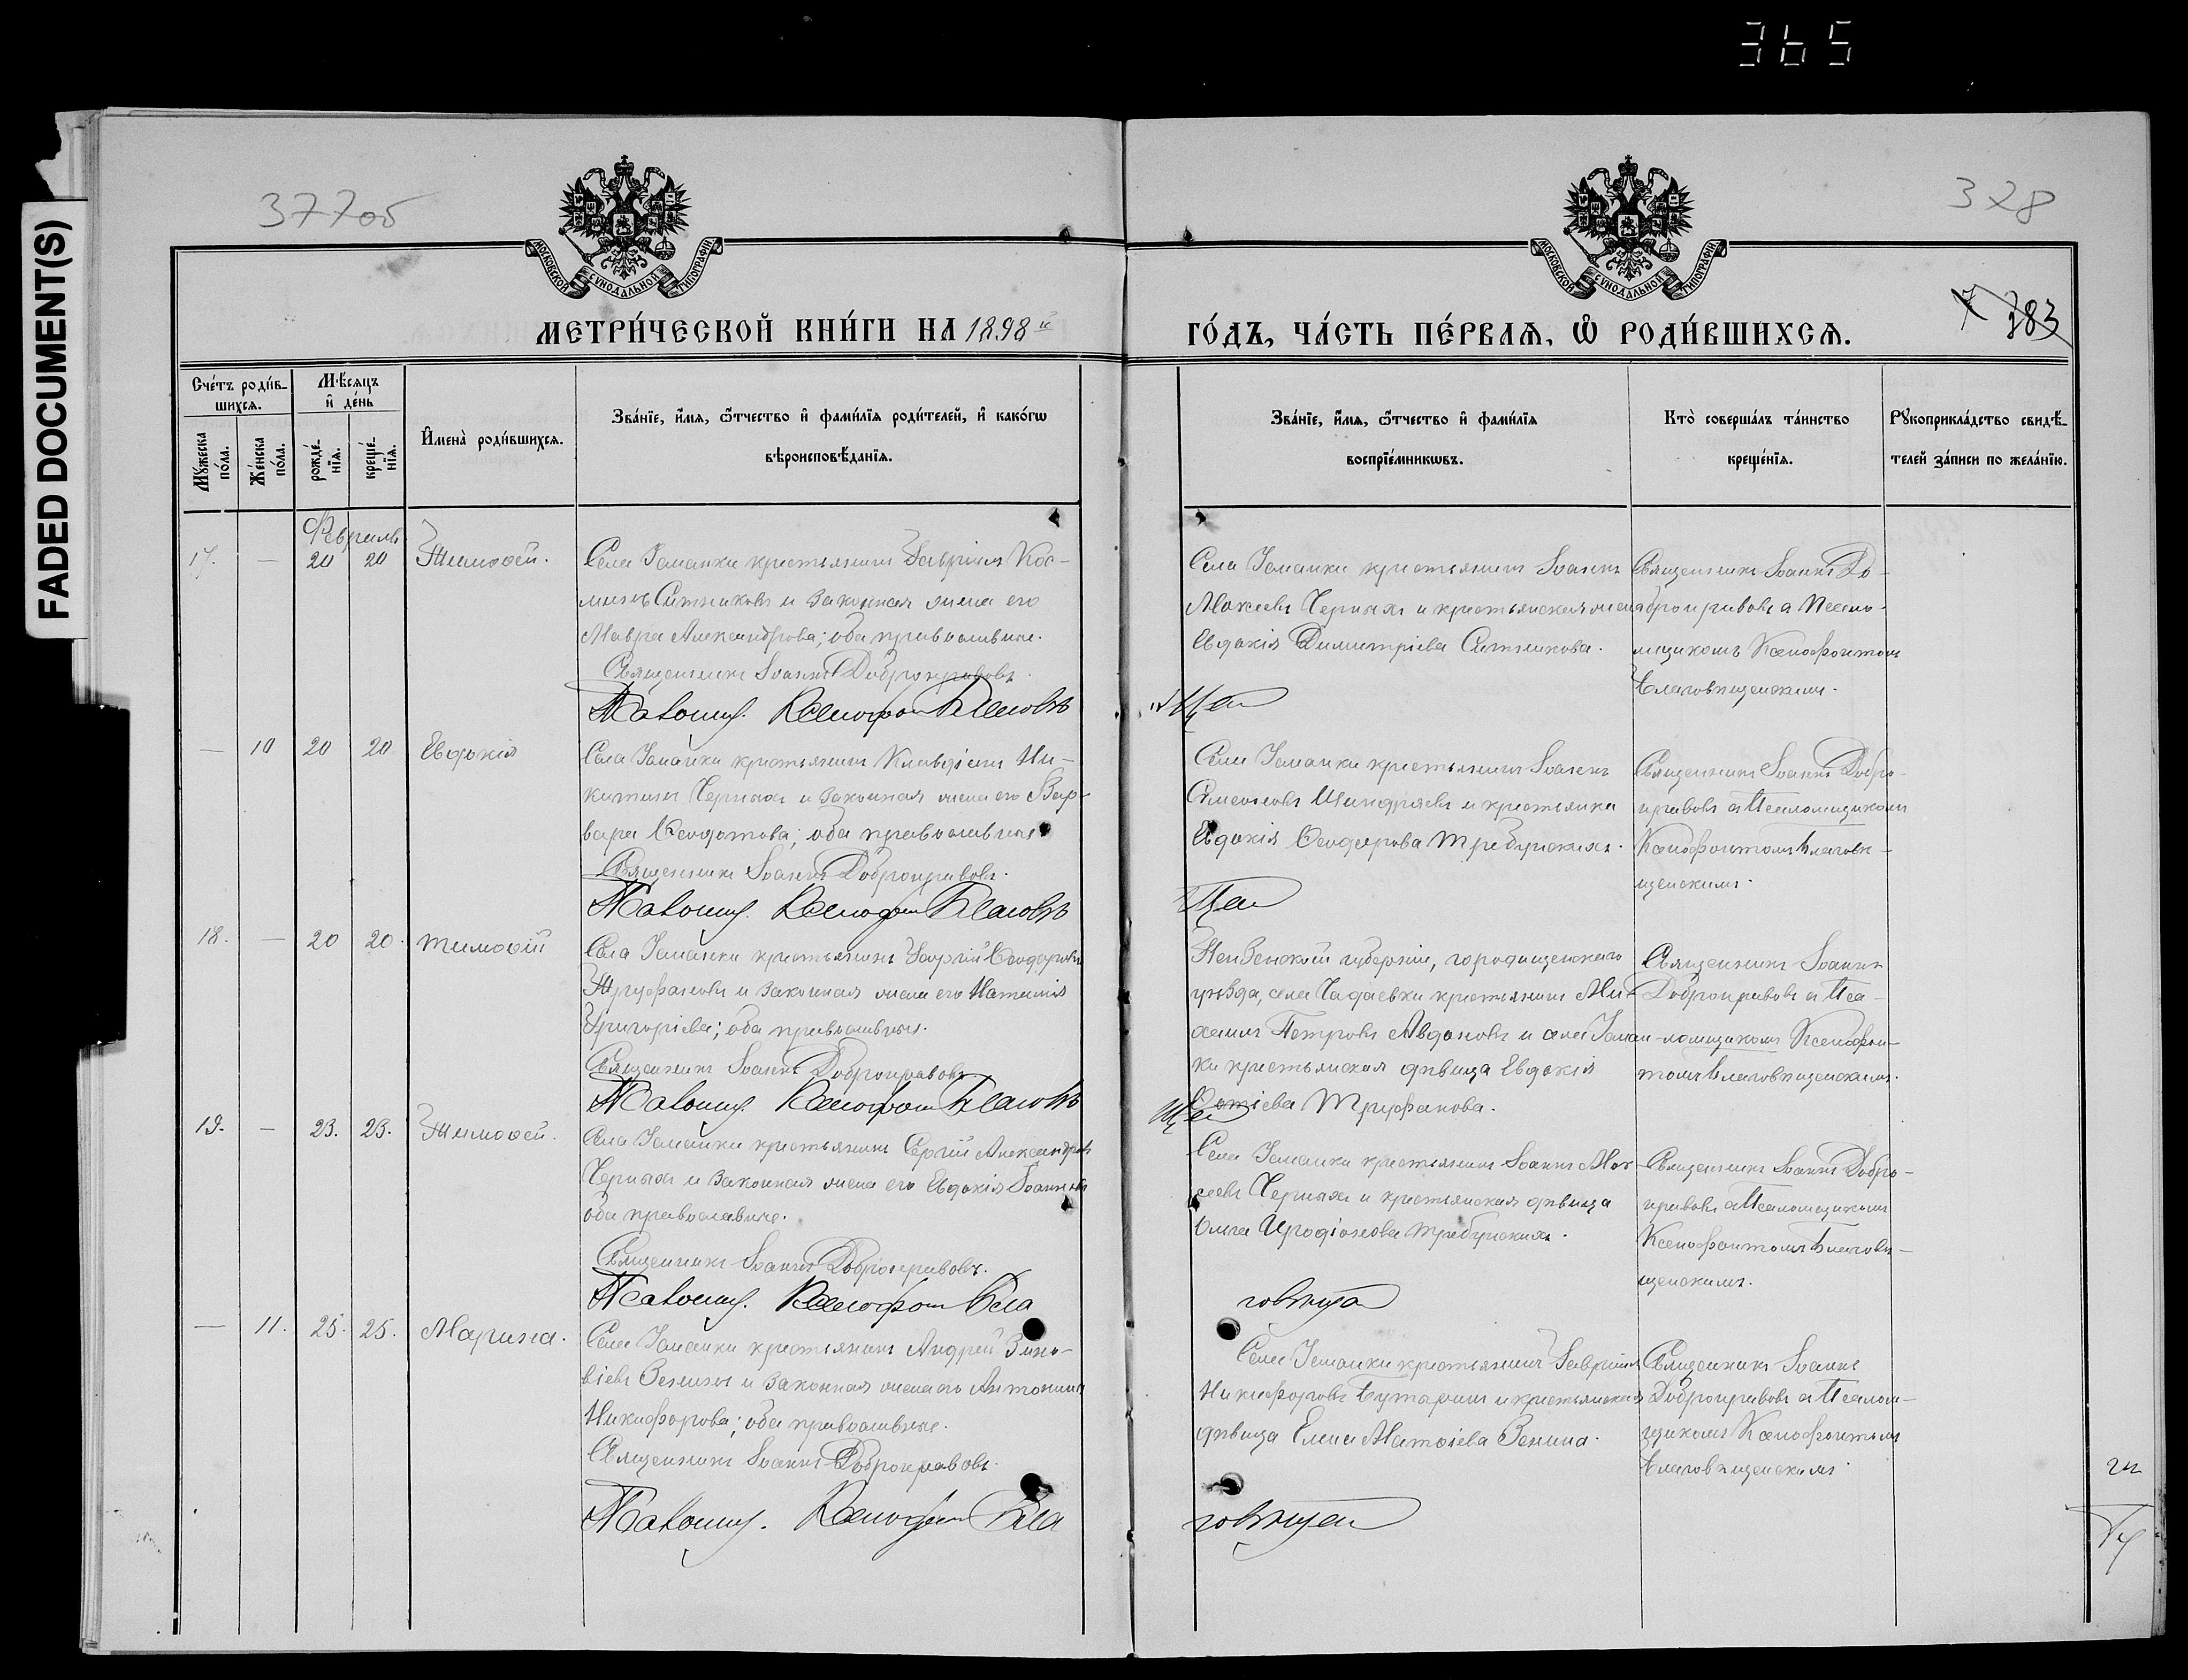 365
FADED DOCUMENT(S)
377об
328
МОСКОВСКОЙ СУНОДАЛЬНОЙ ТИПОГРАФІИ
МОСКОВСКОЙ СУНОДАЛЬНОЙ ТИПОГРАФІИ
383
МЕТРИ́ЧЕСКОЙ КНИ́ГИ НА 1898й
ГО́ДЪ, ЧА́СТЬ ПЕ́РВАѦ, Ѡ҆ РОДИ́ВШИХСѦ.
Сче́тъ роди́в-
шихсѧ.
Мꙋ́жеска по́ла.
Же́нска по́ла.
Мѣ́сѧцъ
и҆ де́нь
рожде́-
нїѧ.
креще́-
нїѧ.
И҆мена̀ роди́вшихсѧ.
Зва́нїе, и҆́мѧ, ѻ҆́тчество и҆ фами́лїѧ роди́телей, и҆ како́гѡ
вѣроисповѣ́данїѧ.
Зва́нїе, и҆́мѧ, ѻ҆́тчество и҆ фами́лїѧ
воспрїе́мникѡвъ.
Кто̀ соверша́лъ та́инство
креще́нїѧ.
Рꙋкоприкла́дство свидѣ́-
телей за́писи по жела́нїю.
Февраль
17. — 20 20 Тимоѳей.
Села Іаманки крестьянинъ Гавріилъ Кос-
минъ Ситниковъ и законная жена его
Мавра Александрова; оба православные.
Священникъ Іоаннъ Добронравовъ.
Псаломщ. Ксенофон Благовѣ
Села Іаманки крестьянинъ Іоаннъ
Мокеевъ Черныхъ и крестьянская жена
Евдокія Димитріева Ситникова.
щен
Священникъ Іоаннъ До-
бронравовъ с Псало-
мщикомъ Ксенофонтомъ
Благовѣщенскимъ.
— 10 20 20 Евдокія
Села Іаманки крестьянинъ Клавдіанъ Ни-
китинъ Черныхъ и законная жена его Вар-
вара Ѳеодотова; оба православные
Священникъ Іоаннъ Добронравовъ.
Псаломщ. Ксенофон Благовѣ
Села Іаманки крестьянинъ Іоаннъ
Симеоновъ Шиндряевъ и крестьянка
Евдокія Ѳеодорова Требунскихъ.
щен
Священникъ Іоаннъ Добро-
нравовъ с Псаломщикомъ
Ксенофонтомъ Благовѣ-
щенскимъ.
18. — 20 20. Тимоѳей
Села Іаманки крестьянинъ Георгій Ѳеодоровъ
Труфановъ и законная жена его Наталія
Григоріева; оба православные.
Священникъ Іоаннъ Добронравовъ
Псаломщ. Ксенофон Благовѣ
Пензенской губерніи, городищенскаго
уѣзда, села Чадаевки крестьянинъ Ми-
хаилъ Петровъ Авдоновъ и села Іаман-
ки крестьянская дѣвица Евдокія
Фотіева Труфанова.
щен
Священникъ Іоаннъ
Добронравовъ с Пса-
ломщикомъ Ксенофон-
томъ Благовѣщенскимъ.
19. — 23. 23. Тимоѳей.
Села Іаманки крестьянинъ Сергій Александровъ
Черныхъ и законная жена его Евдокія Іоаннова
оба православные.
Священникъ Іоаннъ Добронравовъ.
Псаломщ. Ксенофон Бла
Села Іаманки крестьянинъ Іоаннъ Мок-
еевъ Черныхъ и крестьянская дѣвица
Ольга Иродіонова Требунскихъ.
говѣщен
Священникъ Іоаннъ Добро-
нравовъ с Псаломщикомъ
Ксенофонтомъ Благовѣ-
щенскимъ.
— 11. 25. 25. Марина.
Села Іаманки крестьянинъ Андрей Зино-
віевъ Зенинъ и законная жена его Антонина
Никифорова; оба православные.
Священникъ Іоаннъ Добронравовъ.
Псаломщ. Ксенофон Бла
Села Іаманки крестьянинъ Гавріилъ
Никифоровъ Бутаринъ и крестьянская
дѣвица Елена Матѳіева Зенина.
говѣщен
Священникъ Іоаннъ
Добронравовъ с Псалом-
щикомъ Ксенофонтомъ
Благовѣщенскимъ.